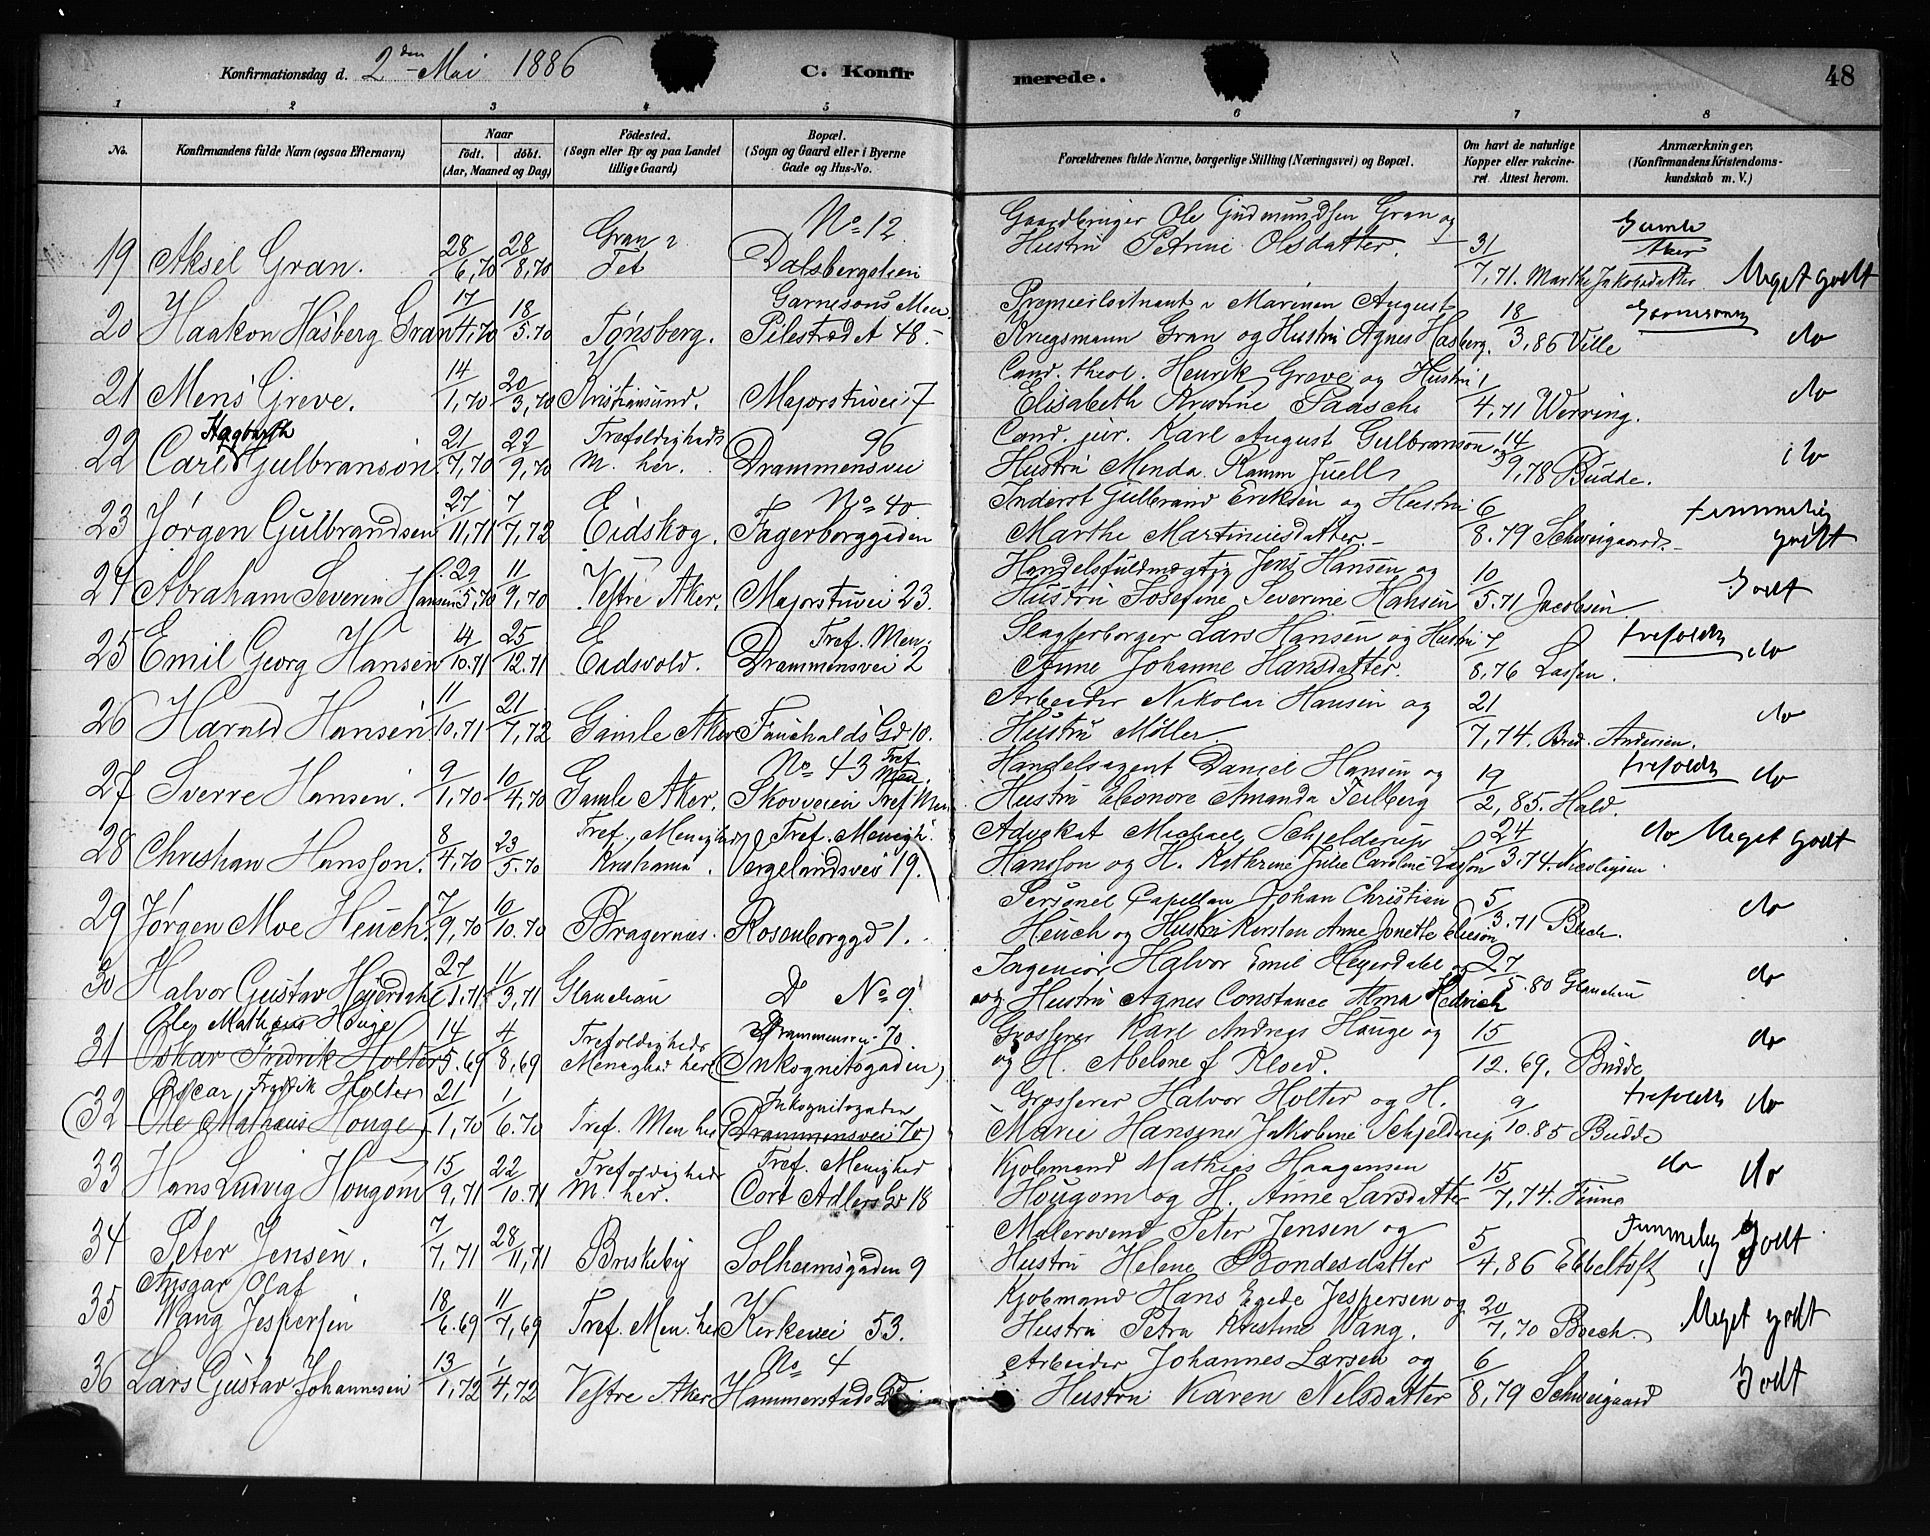 Konfirmationsdag d. 2den Mai 1886
C. Konfirmerede.
48
1 2 3 4 5 6 7 8
No.
Konfirmandens fulde Navn (ogsaa Efternavn)
Naar
født. døbt.
(Aar, Maaned og Dag)
Fødested.
(Sogn eller By og paa Landet
tillige Gaard)
Bopæl.
(Sogn og Gaard eller i Byerne
Gade og Hus-No.
Forældrenes fulde Navne, borgerlige Stilling (Næringsvei) og Bopæl.
Om havt de naturlige
Kopper eller vakcineret. Attest herom.
Anmærkninger.
(Konfirmandens Kristendomskundskab m. V.)
19 Aksel Gran. 28/6,70 28/8,70 Gran i Fet No 12 Dalsbergstien Gaardbruger Ole Gudmundsen Gran og
Hustru Petrine Olsdatter. 31/7,71. Marthe Jakobsdatter Gamle Aker Meget godt
20 Haakon Hasberg Gran 17/4,70 18/5.70 Tønsberg. Garnisons Men. Pilestræd A 48. Premierløitnant i Marinen August
Kriegsmann Gran og Hustru Agnes Hasberg. 18/3,86 Ville Garnisons do
21 Mens Greve. 14/1,70 20/3,70 Kristiansund. Majorstuvei 7 Cand. theol. Henrik Greve og Hustru
Elisabeth Kristine Paasche 1/4,71 Werring. do
22 Carl Hagbarth Gulbranson 21/7,70 22/9,70 Trefoldigheds M. her. 96 Drammensvei Cand. jur. Karl August Gulbranson
Hustru Menda Ramm Juell 14/9,78 Budde. do
23 Jørgen Gulbrandsen 27/11,71 7/7,72 Eidskog. No 40 Fagerborggaden Inderst Gulbrand Eriksen og Hustru
Marthe Martiniusdatter. 6/8.79 Schweigaard. temmelig godt
24 Abraham Severin Hansen 29/5,70 11/9,70 Vestre Aker. Majorstuvei 23. Handelsfuldmægtig Jens Hansen og
Hustru Josefine Severine Hansen 10/5.71 Jacobsen Godt
25 Emil Georg Hansen 14/10.71 25/12.71 Eidsvold. Tref. Men. Drammensvei 2 Slagterborger Lars Hansen og Hustru
Anne Johanne Hansdatter. 7/8,76 Lassen. trefoldig do
26 Harald Hansen 11/10.71 21/7,72 Gamle Aker Fauchalds Gd 10. Arbeider Nikolai Hansen og
Hustru Møller 21/7,74. Bred. Andersen. do
27 Sverre Hansen. 9/1,70 10/4,70 Gamle Aker. No 43 Skovveien Tref. Men. Handelsagent Daniel Hansen og
Hustru Eleonore Amanda Feilberg 19/2,85. Hald. trefoldig do
28 Christian Hansson. 8/4,70 23/5.70 Tref. Menighed Kristiania. Tref. Menigh. Vergelandsvei 19. Advokat Michael Schjelderup
Hansson og H. Kathrine Julie Caroline Lasson 24/3.74. Nicolaysen do Meget godt
29 Jørgen Moe Heuch. 7/9,70 10/10.70 Bragernes. Rosenborggd 1. Personel Capellan Johan Christian
Heuch og Hustru Kirsten Anne Jonette Elieson 5/3.71 Blich. do
30 Halvor Gustav Heyerdahl 27/1,71 11/3,71 Glauchau D No 9 Ingeniør Halvor Emil Heyerdahl og
og Hustru Agnes Constance Alma Hedrich 27/5.80 Glauchau do
31 Ole Mathæus Houge Oskar Fredrik Holter 14/5.69 4/8,69 Trefoldigheds Menighed her Drammensvei 70. (Inkognitogaden) Grosserer Karl Andreas Hauge og
og H. Abelone f Kloed. 15/12.69. Budde do
(32 Oscar Fredrik Holter Ole Mathæus Houge) 21/1,70 1/6.70 Tref. Men her Inkognitogaden (Drammensvei 70) Grosserer Halvor Holter og H.
Marie Hansine Jakobine Schjelderup 9/10.85 Budde trefoldig do
33 Hans Ludvig Hougom 15/9,71 22/10.71 Trefoldigheds M. her. Tref. Menighed Cort Adlers Gd 18 Kjøbmand Mathias Haagensen
Hougom og H. Anne Larsdatter 15/7,74. Finne do do
34 Peter Jensen. 7/7,71 28/11,71 Briskeby Solheimsgaden 9 Malersvend Peter Jensen og
Hustru Helene Bondesdatter 5/4,86 Ebbeltoft Temmelig Godt
35 Ansgar Olaf Wang Jespersen 18/6.69 11/7,69 Tref. Men. her Kirkevei 53. Kjøbmand Hans Egede Jespersen og
Hustru Petra Kristine Wang. 20/7,70 Boech. Meget godt
36 Lars Gustav Johannesen 13/1,72 1/4,72 Vestre Aker No 4 Hammerstads Gd Arbeider Johannes Larsen og
Hustru Karen Nilsdatter 6/8,79 Schweigaard Godt